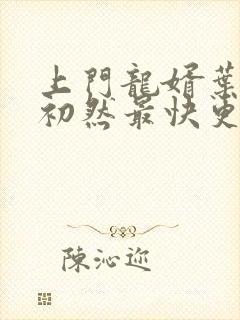 上門龍婿葉
初然最快更
陳沁迩